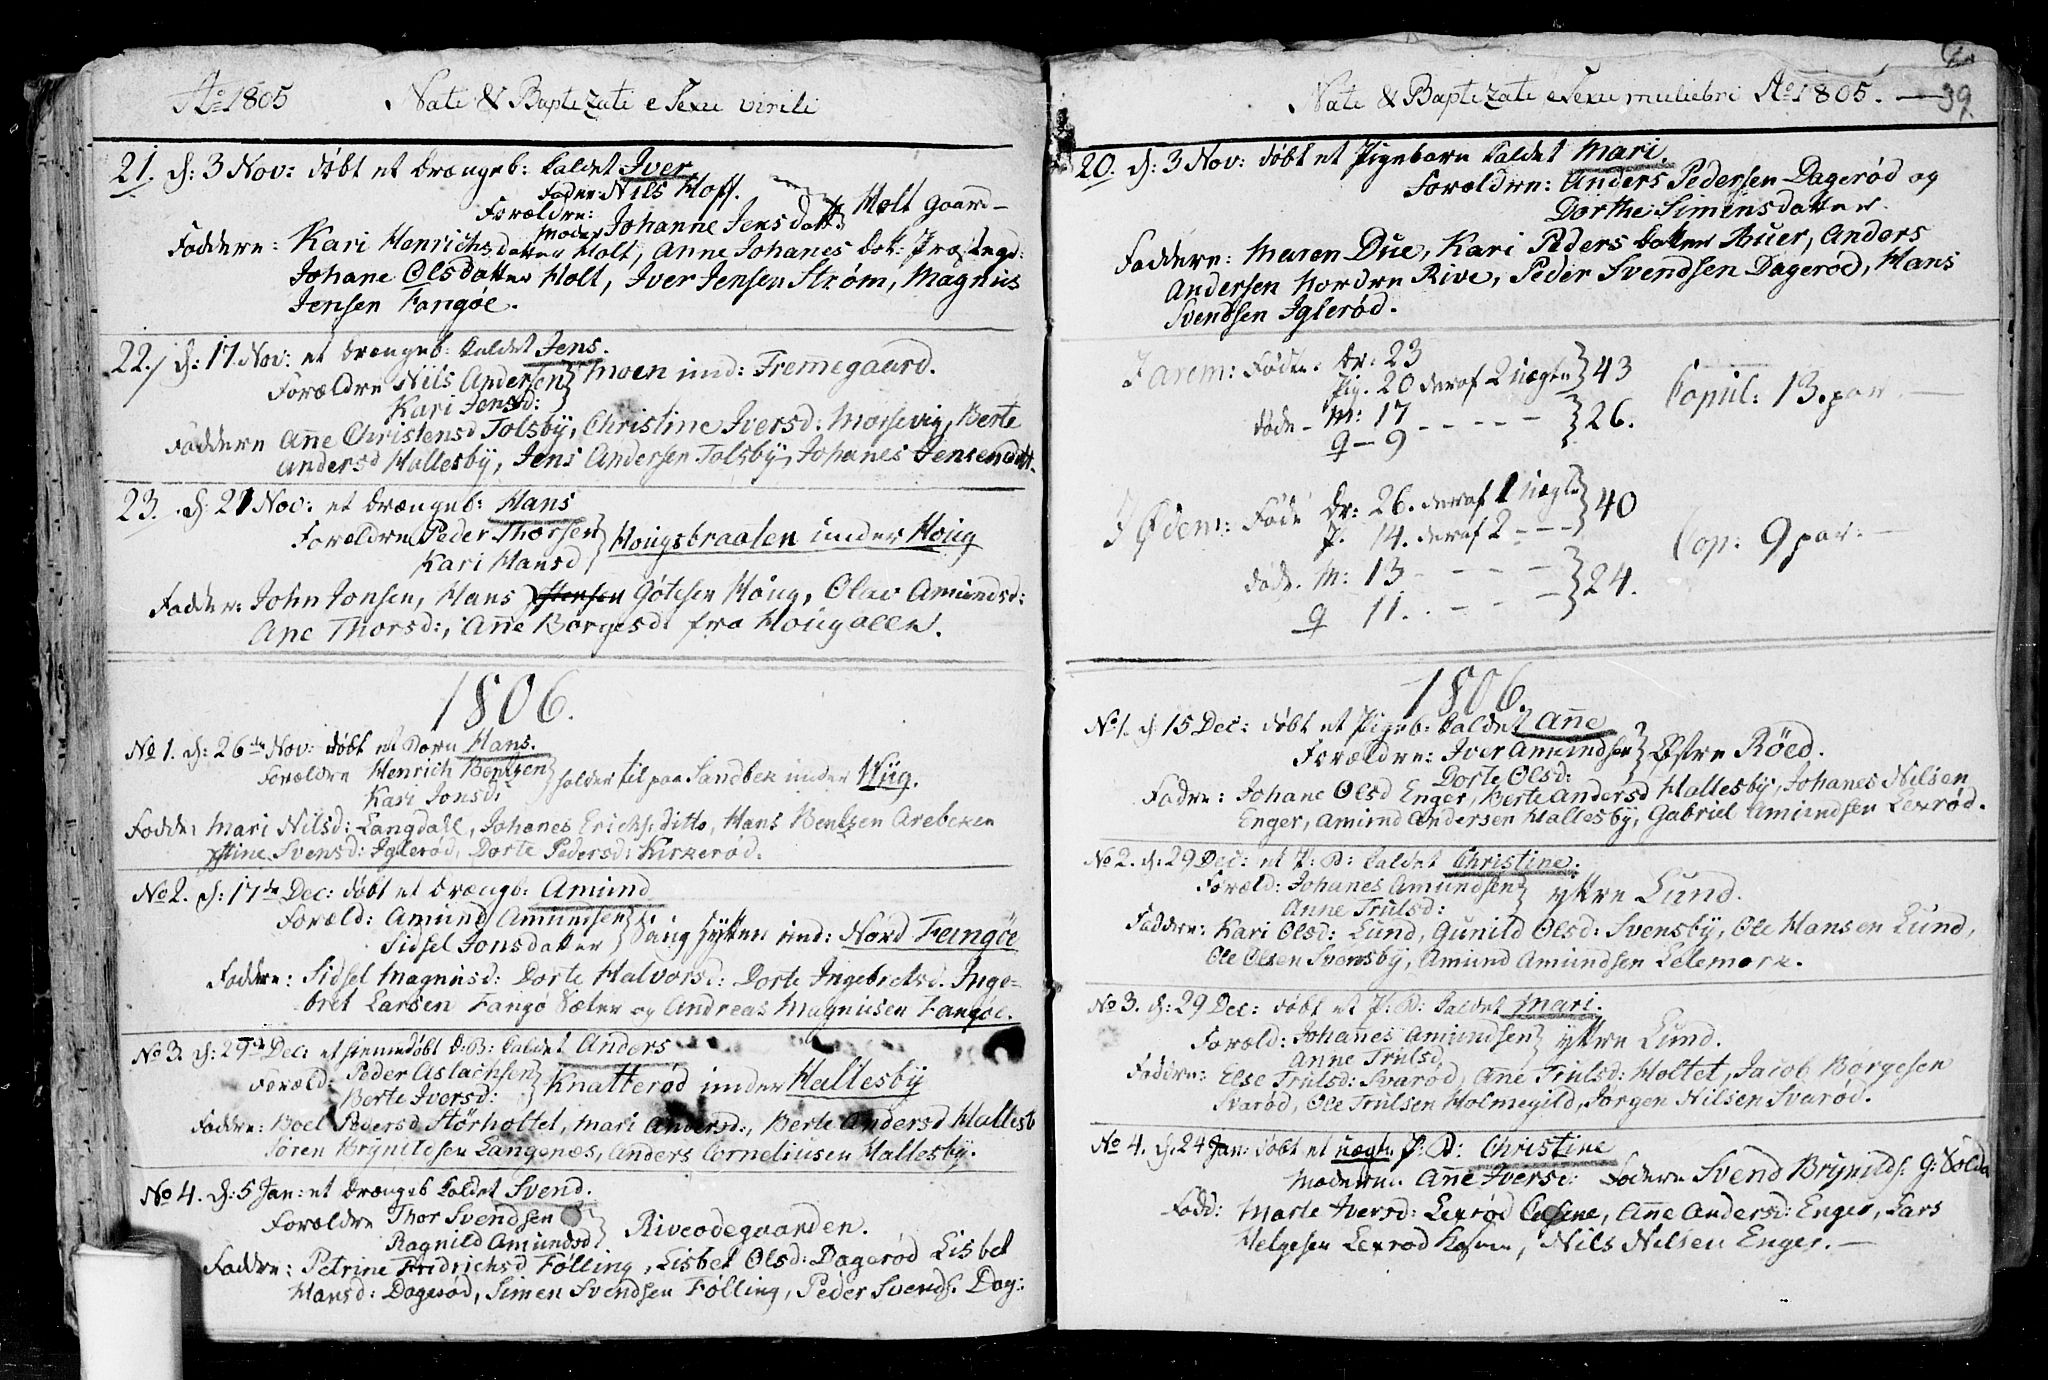 Ao 1805 Nati & Baptizati e Sexu virili
21. d: 3 Nov: döbt et drængeb: kaldet Iver
Fader Nils Hoff.
Forældre: Holt gaard
Moder Johanne Jensdatt
Faddere: Kari Henrichsdatter Holt, Anne Johanes dat: Præstegd:
Johane Olsdatter Holt, Iver Jensen Ström, Magnus
Jensen Fangöe.
22. d: 17 Nov: et drængeb: kaldet Jens.
Forældre Nils Andersen Moen und: Fremegaard.
Kari Jensd:
Faddere Añe Christensd Tolsby, Christine Iversd: Morsevig, Berte
Andersd Hallesby, Jens Andersen Tolsby, Johanes Jensen
23. d: 21 Nov: et drængeb: Hans
Forældre Peder Thorsen Hougsbraaten under Houg
Kari Hansd
Fadder: John Jonsen, Hans Götesen Houg, Olav Amundsd:
Ane Thorsd:, Añe Börgesd: fra Hougalle.
1806.
No 1. d: 26de Nov: döbt et Barn Hans.
Forældre Henrich Bentzen holder til paa Sandbek under Hug.
Kari Jonsd:
Fadd: Mari Nilsd: Langdahl, Johanes Erichs: ditto, Hans Bentzen Arebeken
Stine Svensd: Iglerød, Dorte Pedersd: Kirkerød.
No 2. d: 17de Dec: döbt et drængb: Amund
Foræld: Amund Amundsen und: Nord Fangöe
Sidsel Jonsdatter
Faddre: Sidsel Magnusd: Dorte Halvorsd: Dorte Ingebretsd. Inge-
bret Larsen Fangø Sæter og Andreas Magnusen Fangöe.
No 3. d: 29de Dec: et hiemedöbt D:B: kaldet Anders
Foræld: Peder Aslachsen Knatterød under Hallesby
Berte Iversd:
Faddre: Boel Pedersd Störholtet, Mari Andersd:, Berte Andersd Hallesb
Sören Brynildsen Langenæs, Anders Corneliusen Hallesby.
No 4. d: 5 Jan: et drængeb kaldet Svend.
Forældre Thor Svendsen Riveodegaarden.
Ragnild Amundsd
Faddre: Petrine Fridrichsd Fölling, Lisbet Olsd: Dagerød Lisbet
Hansd: Dagerød, Simen Svendsen Følling, Peder Svends: Dag:
Nati & Baptizati e Sexu muliebri Ao 1805. 39
20. d: 3 Nov: döbt et Pigebarn kaldet Mari.
Forældre: Anders Pedersen Dagerød og
Dorthe Simensdatter.
Faddere: Maren Due, Kari Peders datter Buer, Anders
Andersen Nordre Rive, Peder Svendsen Dagerød, Hans
Svendsen Iglerød.
I arem: Fødte: Dr: 23
Pig. 20 deraf 2 uægte 43 Copul: 13. par.
døde - M: 17
Q - 9 26.
I Ødem: Føde Dr: 26. deraf 1 uægte
P. 14. deraf 2 40 Cop: 9 par:
døde. M: 13
Q 11. 24.
1806.
No 1. d: 15 Dec: döbt et Pigeb: kaldet Añe
Forældre: Iver Amundsen Østre Röed.
Dorte Olsd:
Fadre: Johane Olsd Enger, Berte Andersd Hallesby, Johanes Nilsen
Enger, Amund Andersen Hallesby, Gabriel Amundsen Lexrød.
No 2. d: 29 Dec: et P: B: kaldet Christine.
Foræld: Johanes Amundsen ytre Lund.
Anne Trulsd:
Faddre: Kari Olsd: Lund, Gunild Olsd: Svensby, Ole Hansen Lund,
Ole Olsen Svensby, Amund Amundsen Lelemork.
No 3. d: 29 Dec: döbt et P: B: kaldet Mari.
Foræld: Johanes Amundsen ytre Lund.
Anne Trulsd
Faddre: Else Trulsd: Svarød, Añe Trulsd: Holtet, Jacob Börgesen
Svarød, Ole Trulsen Holmegild, Jörgen Nilsen Svarød.
No 4. d. 24 Jan: döbt et uægte P: B: Christine
Moderen. Añe Iversd: Fadere Svend Brynilds: G: Solda
Fadd: Marte Iversd: Lexrød, Añe Andersd: Enger, Lars
Helgesen Lexrød, Nils Nilsen Enger.